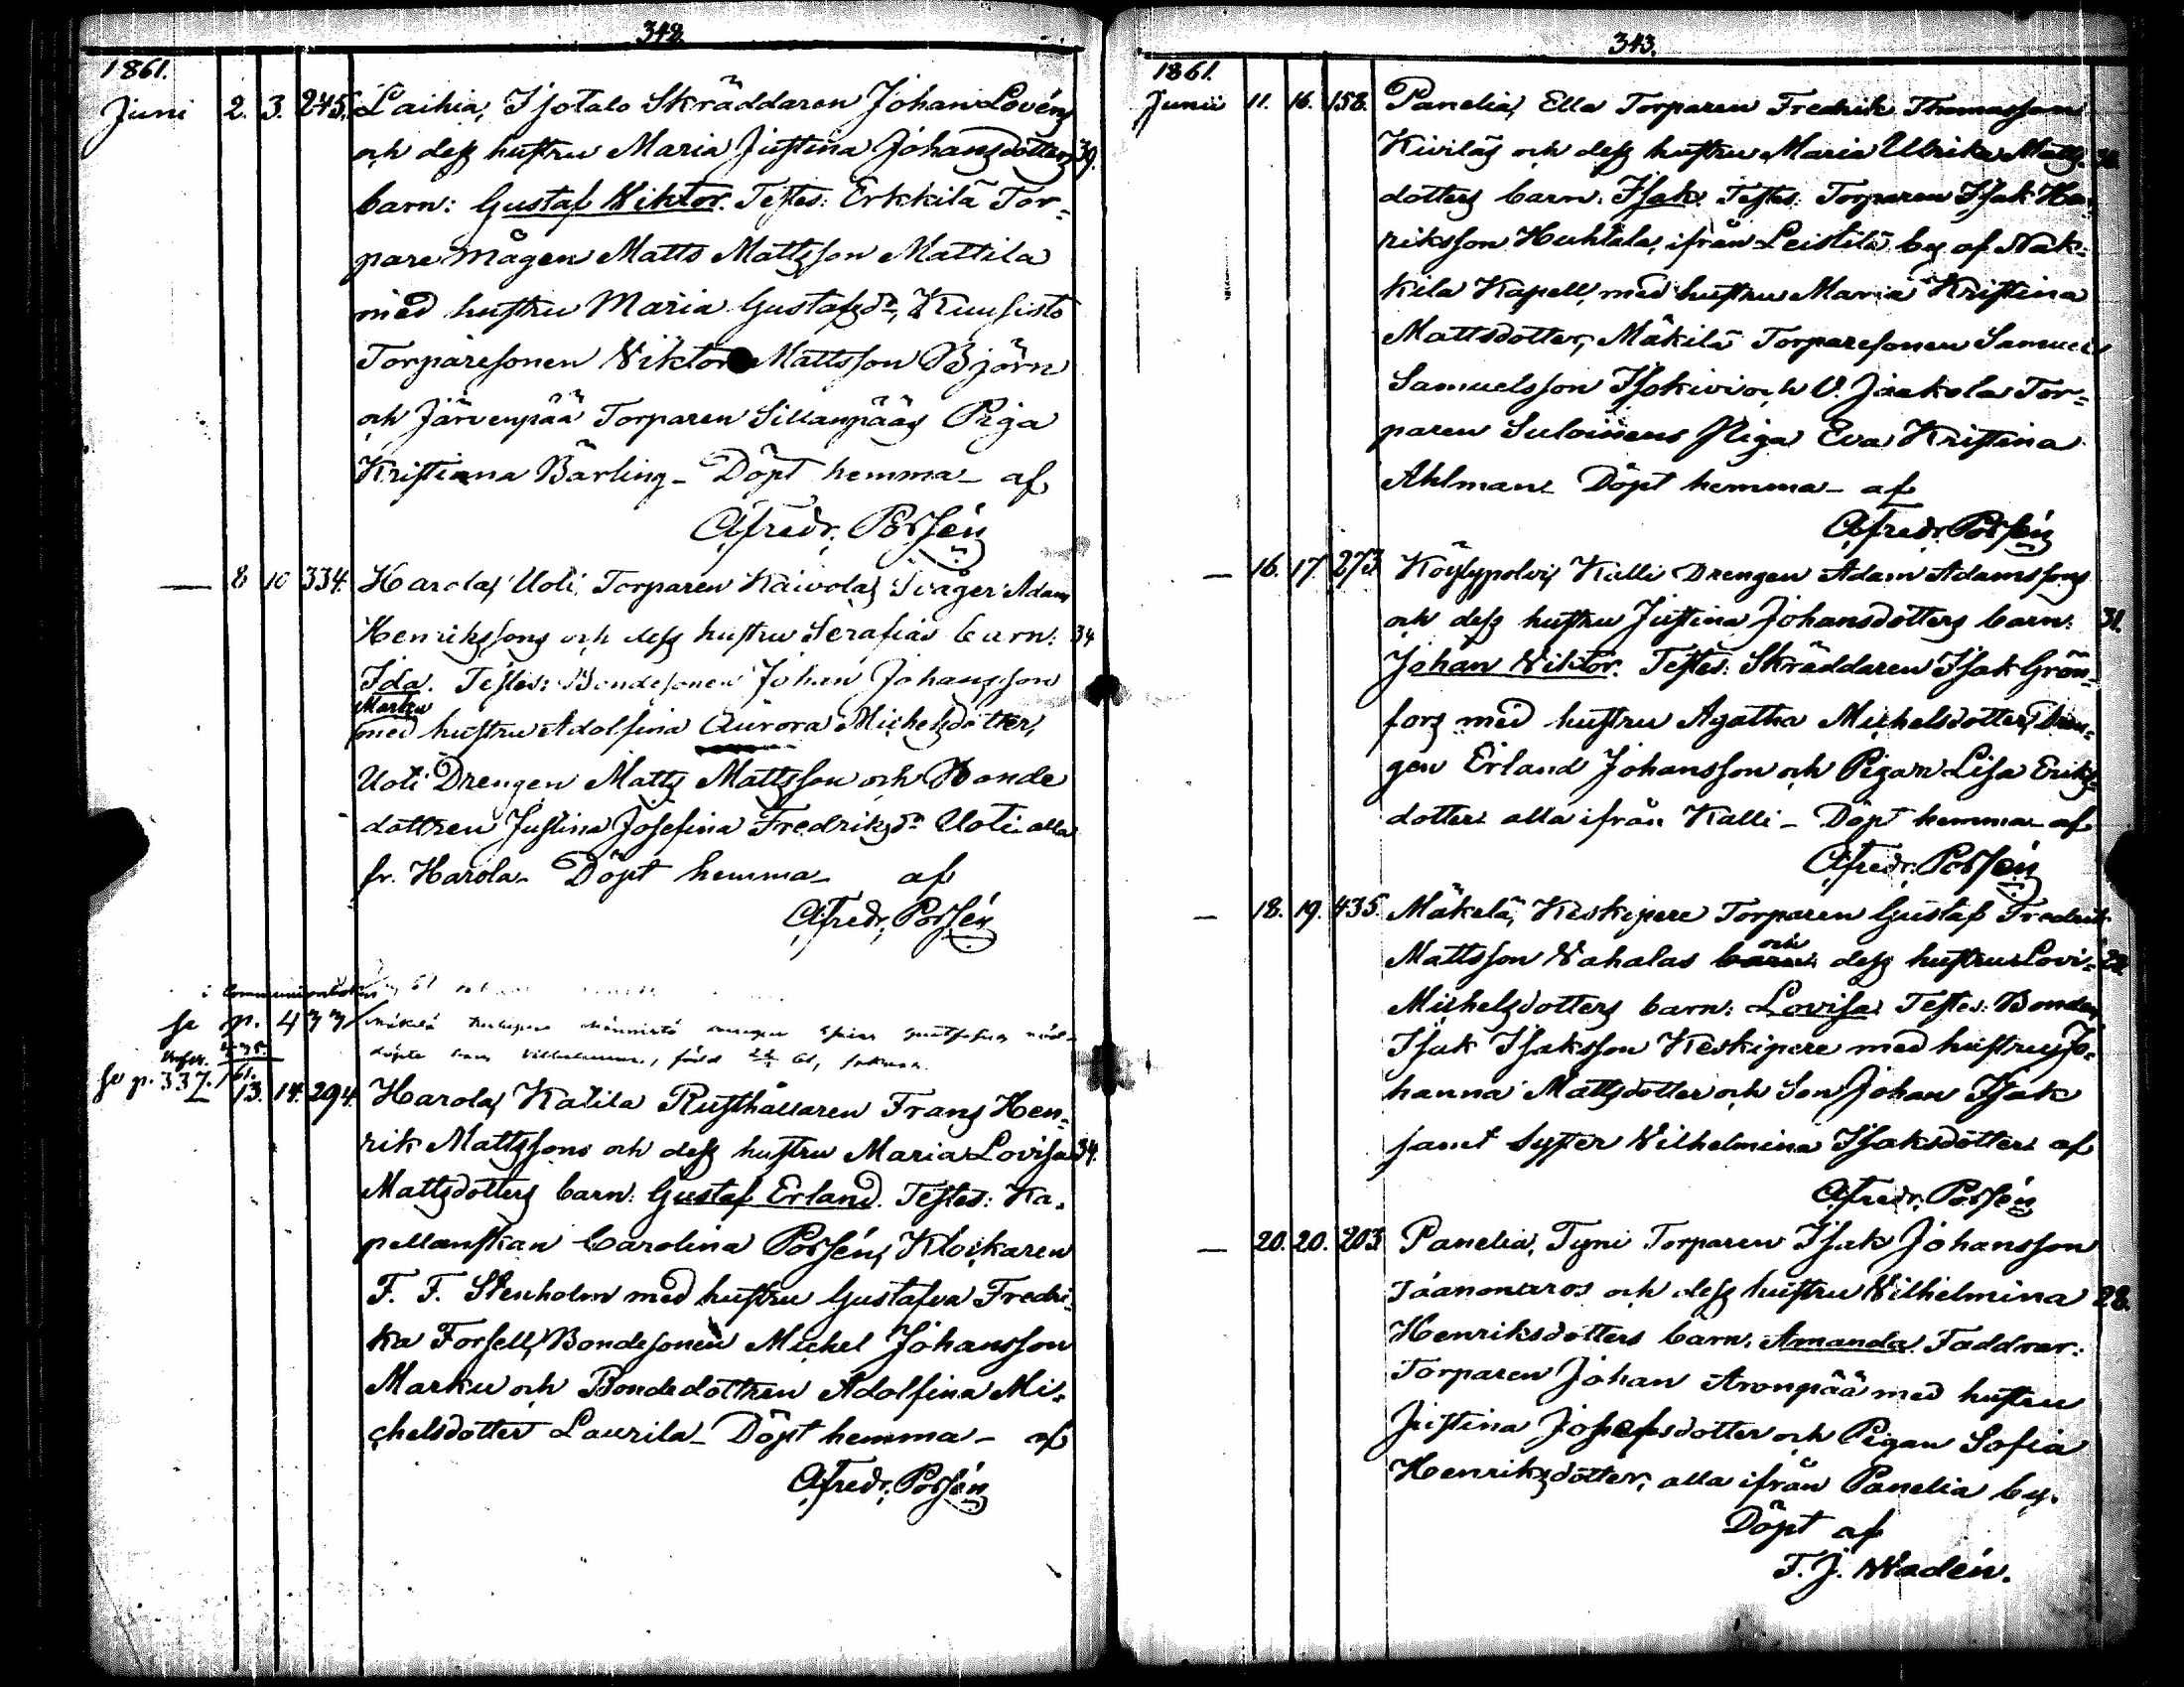 342.
1861.
Juni 2. 3. 245. Laihia, Isotalo Skräddaren Johan Lovéns
och dess hustru Maria Justina Johansdotters 39.
barn: Gustaf Wiktor. Testes: Erkkilä Tor-
pare mågen Matts Mattsson Mattila
med hustru Maria Gustafsdr, Kuusisto
Torparesonen Viktor Mattsson Björn
och Järvenpää Torparen Sillanpääs Piga
Kristiana Bärling - Döpt hemma - af
Afredr. Porsén
— 8 10 334. Harola, Uoti Torparen Kaivolas Svåger Adam
Henrikssons och dess hustru Serafias barn: 34
Ida. Testes: Bondesonen Johan Johansson
Marku
med hustru Adolfina Aurora Michelsdotter,
Uoti Drengen Matts Mattsson och Bonde
dottren Justina Josefina Fredriksdr Uoti alla
fr. Harola - Döpt hemma - af
Afredr. Porsén
i Communionboken
se p. 433
435
född 61,
se p. 337. 13. 14. 294. Harola, Katila Rusthållaren Frans Hen-
rik Mattssons och dess hustru Maria Lovisa 34.
Mattsdotters barn: Gustaf Erland. Testes: Ka-
pellanskan Carolina Porsén, Klockaren
F. F. Stenholm med hustru Gustafva Fredri-
ka Forsell, Bondesonen Michel Johansson
Marku och Bondedottren Adolfina Mi-
chelsdotter Laurila - Döpt hemma - af
Afredr. Porsén
343.
1861.
Junii 11. 16. 158. Panelia, Ella Torparen Fredrik Thomasson
Kiviläs och dess hustru Maria Ulrika Matts-
dotters barn: Isak. Testes: Torparen Isak Hen-
riksson Huhtala, ifrån Leistilä by af Nak-
kila Kapell, med hustru Maria Kristina
Mattsdotter, Mäkilä Torparesonen Samuel
Samuelsson Isokivi och V. Jaakola Tor-
paren Suloisens Piga Eva Kristina
Ahlman - Döpt hemma - af
Afredr. Porsén
— 16. 17. 273. Köylypolvi, Kalli Drengen Adam Adamssons
och dess hustru Justina Johansdotters barn: 31.
Johan Wiktor. Testes: Skräddaren Isak Grön-
fors med hustru Agatha Michelsdotter, Dren-
gen Erland Johansson och Pigan Lisa Eriks-
dotter alla ifrån Kalli - Döpt hemma - af
Afredr. Porsén
— 18. 19. 435. Mäkelä, Keskipere Torparen Gustaf Fredrik
och
Mattsson Wahalas barn dess hustru Lovi-
Michelsdotters barn: Lovisa. Testes: Bonden
Isak Isaksson Keskipere med hustru Jo-
hanna Mattsdotter och Son Johan Isak
samt Syster Wilhelmina Isaksdotter af
Afredr. Porsén
— 20. 20. 203. Panelia, Tyni Torparen Isak Johansson
och dess hustru Wilhelmina 28.
Henriksdotters barn: Amanda. Faddrar:
Torparen Johan Aronpää med hustru
Justina Josefsdotter och Pigan Sofia
Henriksdotter, alla ifrån Panelia by.
Döpt af
F. J. Wadén.